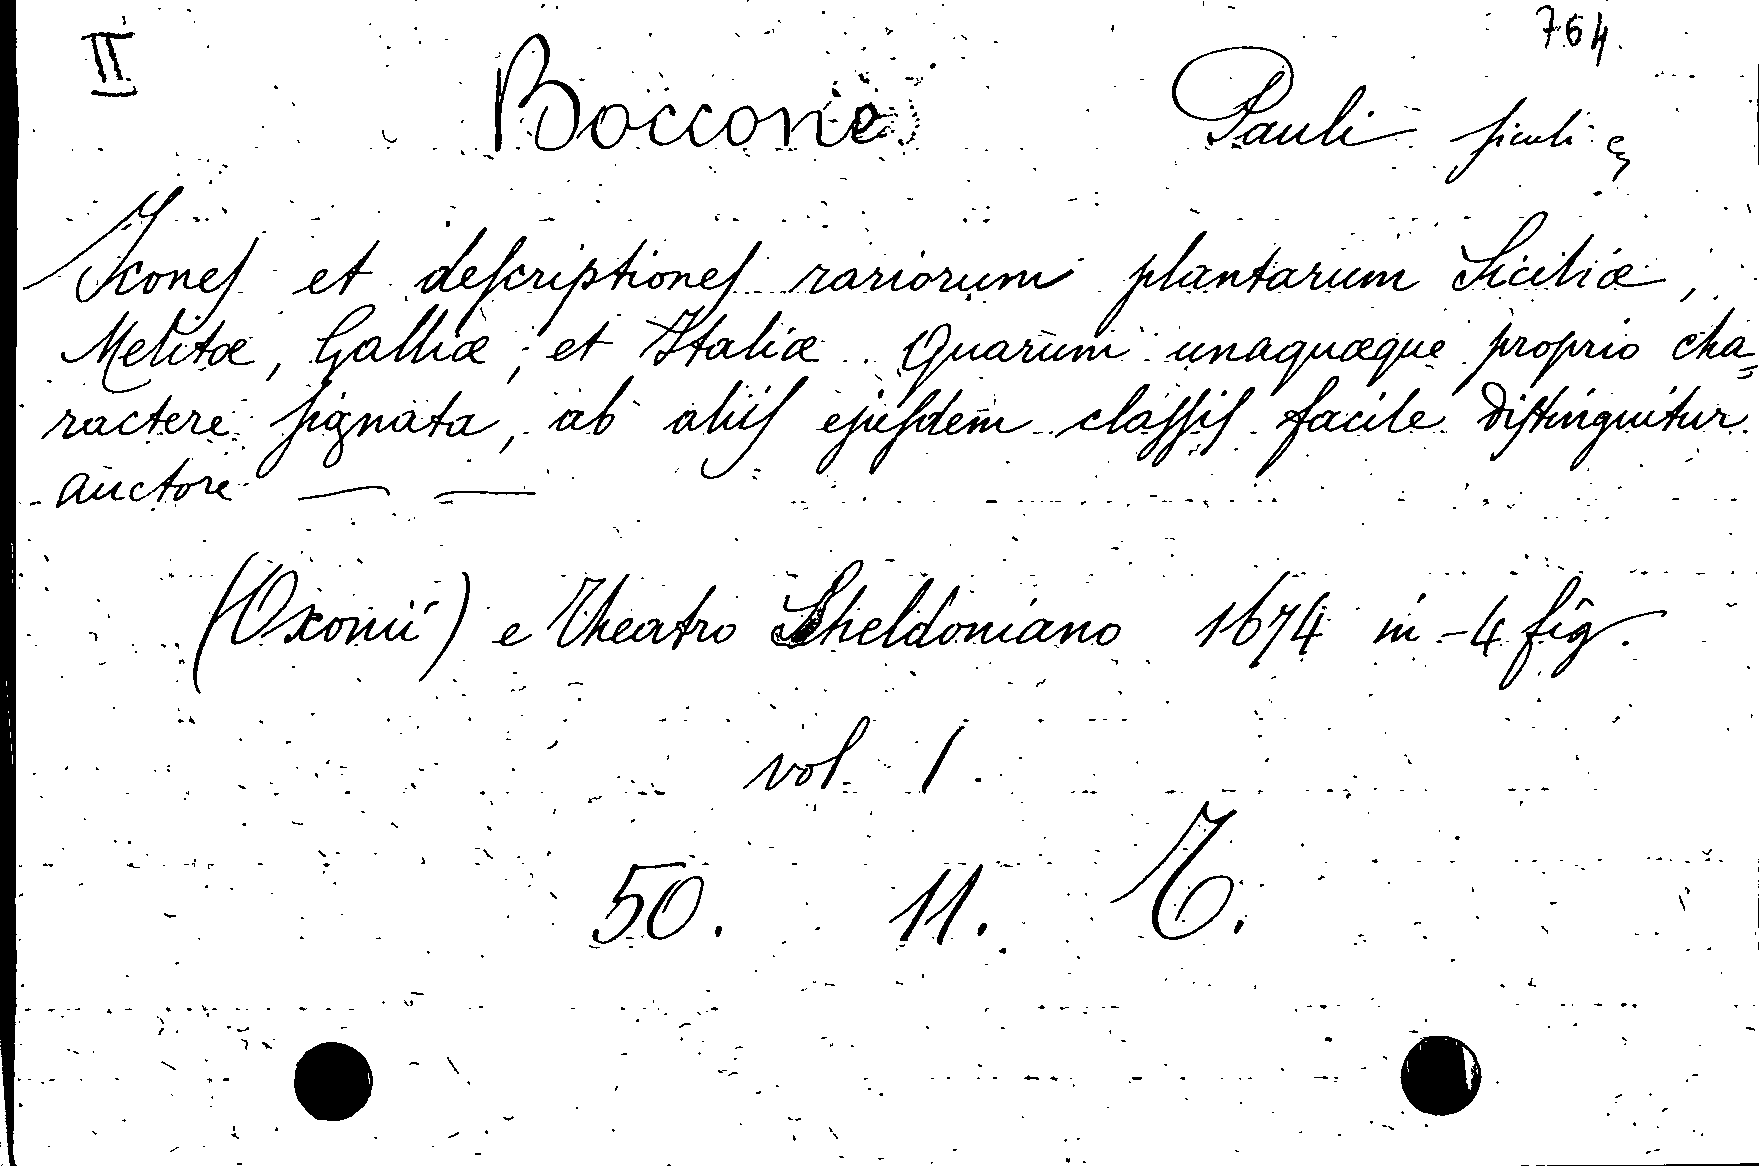 II
764.
Boccone Pauli ſiculi
Iconeſ et deſcriptioneſ rariorum plantarum Siciliæ,
Melitæ, Galliæ, et Italiæ Quarum unaquæque proprio cha=
ractere ſignata, ab aliiſ ejuſdem claſſiſ facile diſtinguitur
auctore — —
(Oxonii) e Theatro Sheldoniano 1674 in-4 fig.
vol 1
50. 11.